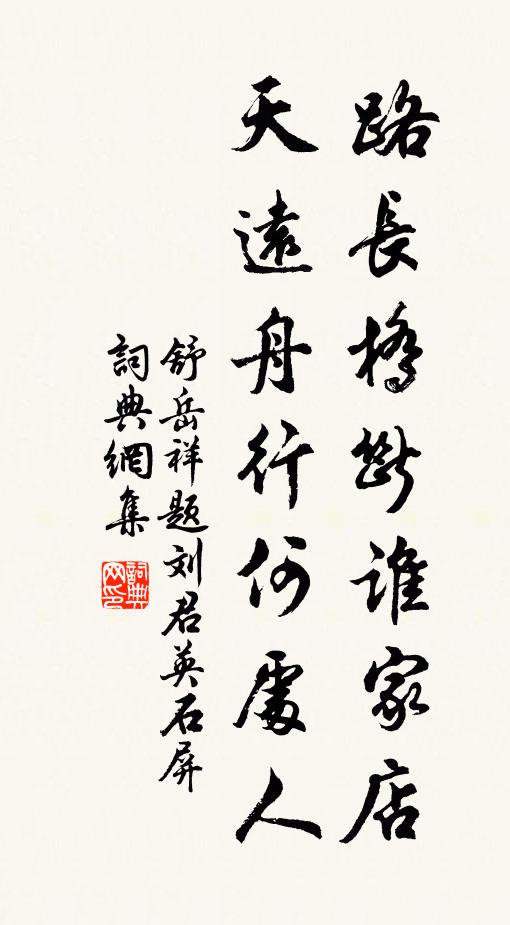 路長橋斷誰家店
天遠舟行何處人
舒岳祥题刘君英石屏
詞典網集
詞典网印